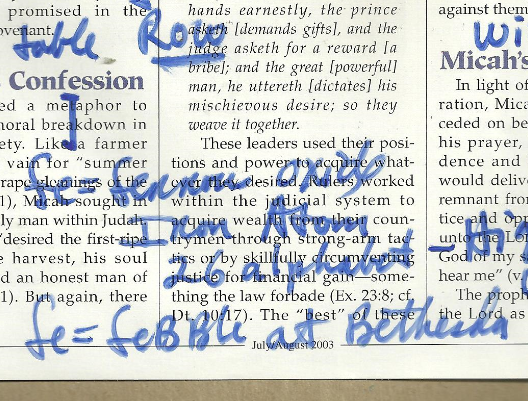 promised in the
covenant.
Confession
ed a metaphor to
moral breakdown in
ety. Like a farmer
vain for "summer
grape gleanings of the
1), Micah sought in
ly man within Judah
"desired the first-ripe
e harvest, his soul
d an honest man of
1). But again, there
hands earnestly, the prince
asketh [demands gifts], and the
judge asketh for a reward [a
bribe]; and the great [powerful]
man, he uttereth [dictates] his
mischievous desire; so they
weave it together.
These leaders used their posi-
tions and power to acquire what-
ever they desired. Rulers worked
within the judicial system to
acquire wealth from their coun-
trymen through strong-arm tac-
tics or by skillfully circumventing
justice for financial gain—some-
thing the law forbade (Ex. 23:8; cf.
Dt. 10:17). The "best" of these
against them
Micah's
In light of
ration, Mica
ceded on be
his prayer,
dence and
would delive
remnant from
tice and opp
unto the Lor
God of my s
hear me" (v.
The proph
the Lord as
July/August 2003
table Row
Wi
Fe =
Iron Atom
26 alphabet
Fe = FeBBle at Bethesda